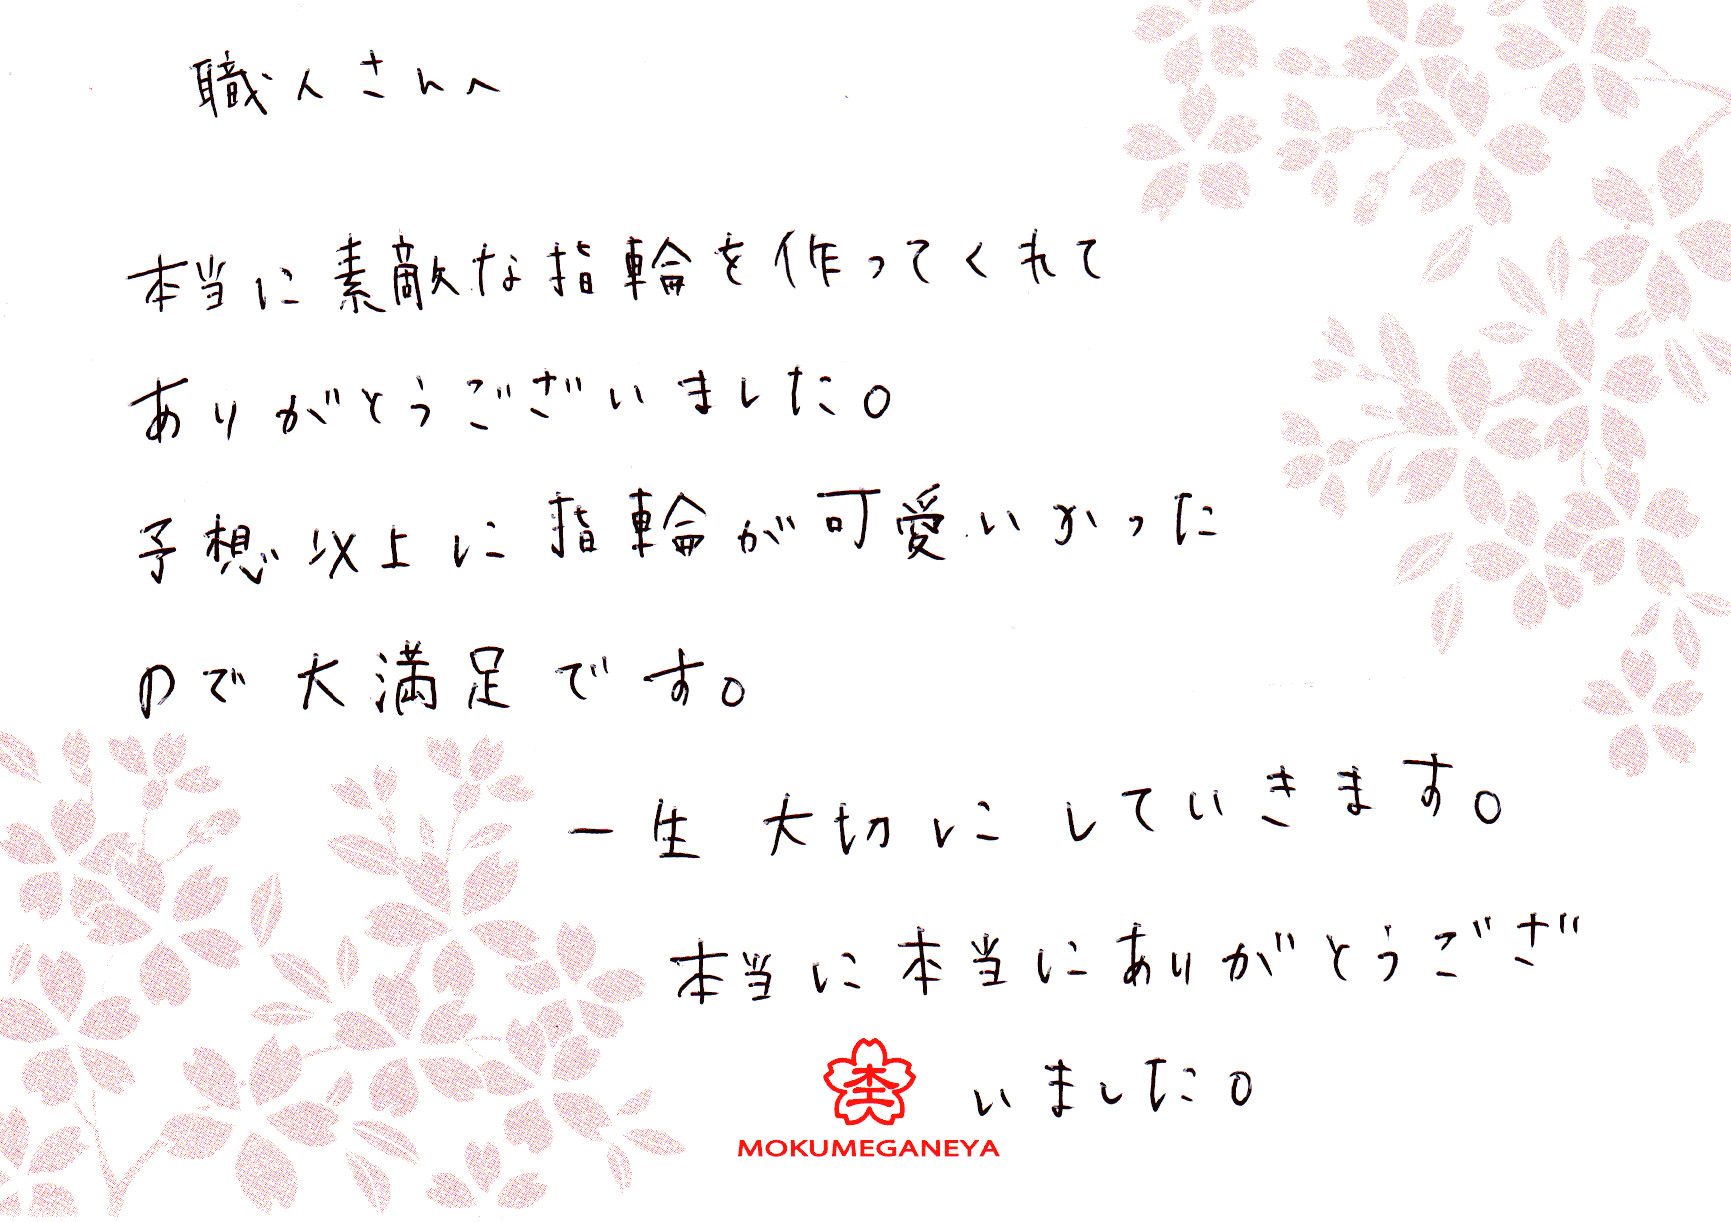 職人さんへ
本当に素敵な指輪を作ってくれて
ありがとうございました。
予想以上に指輪が可愛いかった
ので大満足です。
一生大切にしていきます。
本当に本当にありがとうござ
いました。
MOKUMEGANEYA